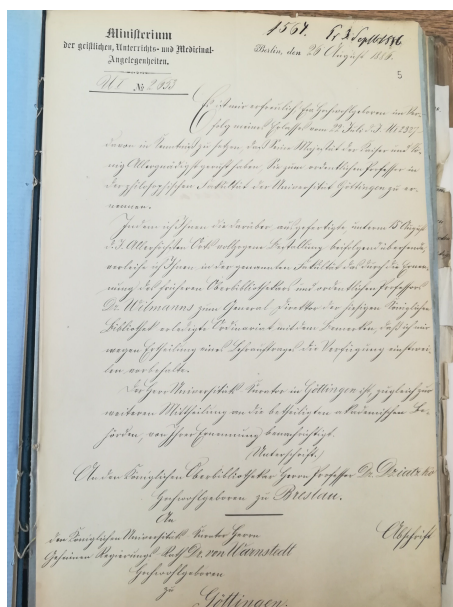 1567. Pr. 3. Septbr 1886
Ministerium
der geistlichen, Unterrichts- und Medicinal-
Angelegenheiten.
Berlin, den 24 August 1886.
5
U I № 2633
Es ist mir erfreulich Eu Hochwohlgeboren im Ver-
folg meines Erlasses vom 22 Juli d. J. U I
davon in Kenntniß zu setzen, daß Seine Majestät der Kaiser und Kö-
nig Allergnädigst geruht haben, Sie zum ordentlichen Professor in
der philosophischen Fakultät der Universität Göttingen zu er-
nennen.
Indem ich Ihnen die darüber ausgefertigte, unterm 15 August
d. J. Allerhöchsten Orts vollzogene Bestallung beifolgend übersende,
verleihe ich Ihnen in der genannten Fakultät das durch die Ernen-
nung des früheren Oberbibliothekars und ordentlichen Professors
Dr. Wilmanns zum General-Direktor der hiesigen Königlichen
Bibliothek erledigte Ordinariat mit dem Bemerken, daß ich mir
wegen Ertheilung eines Lehrauftrages die Verfügung einstwei-
len vorbehalte.
Der Herr Universitäts-Kurator in Göttingen ist, zugleich zur
weiteren Mittheilung an die betheiligten akademischen Be-
hörden, von Ihrer Ernennung benachrichtigt.
(Unterschrift.)
An den Königlichen Oberbibliothekar Herrn Professor Dr. Dziatzko
Hochwohlgeboren zu Breslau.
An
den Königlichen Universitäts-Kurator Herrn
Abschrift
Geheimen Regierungs-Rath Dr. von Warnstedt
Hochwohlgeboren
zu
Göttingen.